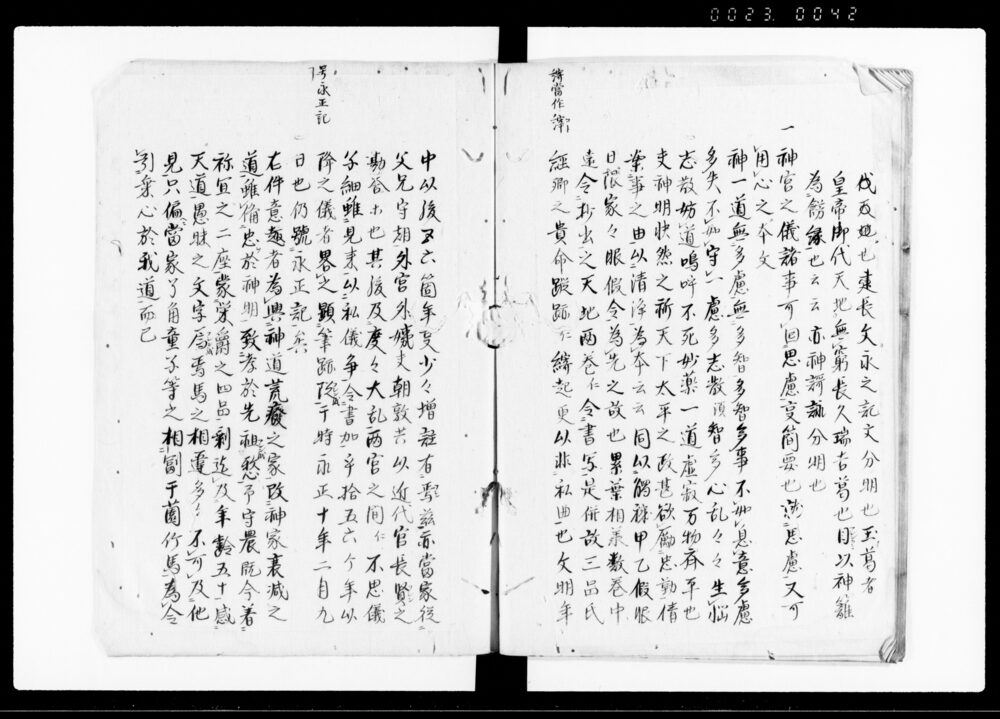 0023. 0042
伐段廻也建長文永之記文分明也玉葛者
皇帝御代天地無窮長久瑞吉葛也因以神籬
為餝縁也云云亦神謌詠分明也
一神宮之儀諸事可回思慮変簡要也浅思慮又可
用心之本文
神一道無多慮無多智多智多事不如息意多慮
多失不如守一慮多志散須智多心乱々々生悩
志散妨道嗚呼不死妙薬一道虚寂万物斉平也
神明快然之祈天下太平之政甚欲励忠勤借
案事之由以清浄為本云云同以觸穢甲乙假服
日限家々眼假令為先之故也累葉相承数巻中
遠令抄出之天地両巻仁令書写是併故三品氏
經卿之貴命蹤跡仁縡起更以非私曲也文明年
諱當作諱
中以後五六箇年更少々増註者聖茲亦當家従
父兄守朝外宮外孃朝敦共以近代官長賢之
勘答也其後及度々大乱両宮之間仁不思儀
子細雖見来以私儀争令書加乎拾五六个年以
降之儀者畧之顕筆跡于時永正十年二月九
日也仍號永正記矣
右件意趣者為興神道荒癈之家改神家衰減之
道雖循忠於神明致孝於先祖愁予守農既今着
祢宜之二座蒙栄爵之四品剰迄及年齢五十感
天道愚昧之文字烏焉馬之相違多々不可及他
見只偏當家了角童子等之相副于蘭竹馬為令
引乗心於我道而已
号永正記